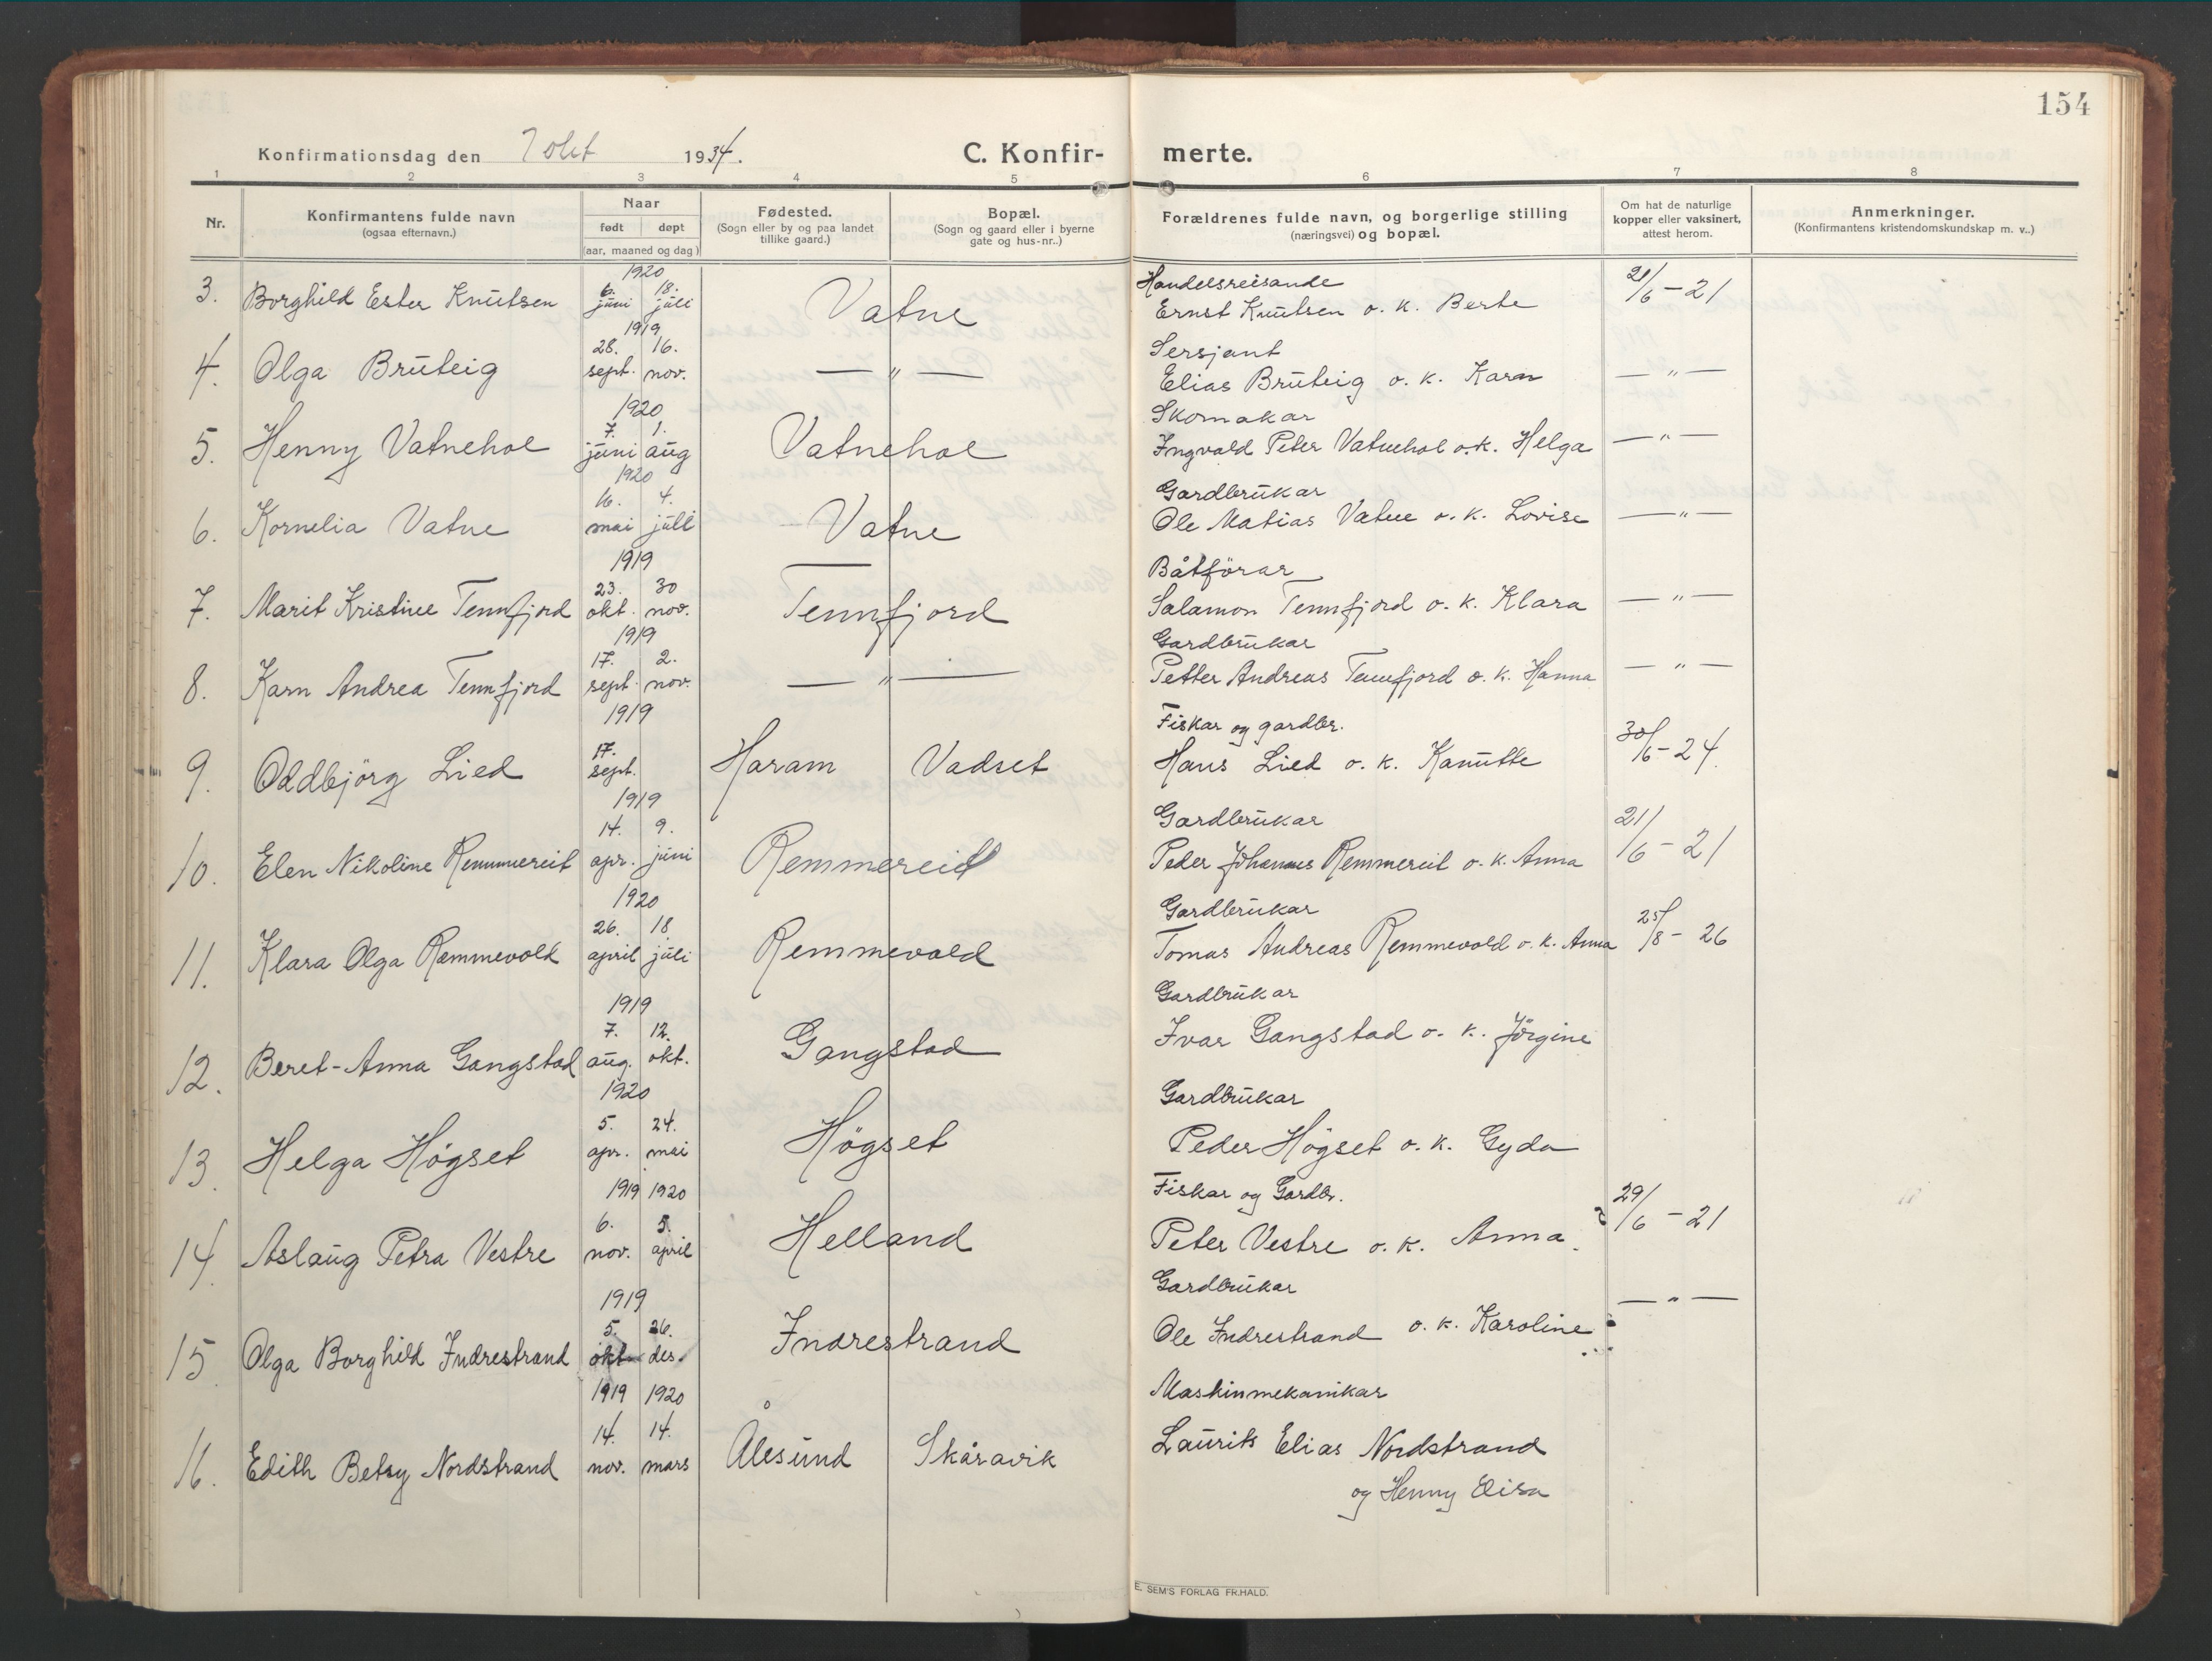 154
Konfirmationsdag den 7 okt 1934.
C. Konfir-
merte.
1 2 3 4 5 6 7 8
Nr.
Konfirmantens fulde navn
(ogsaa efternavn.)
Naar
født døpt
(aar, maaned og dag)
Fødested.
(Sogn eller by og paa landet
tillike gaard.)
Bopæl.
(Sogn og gaard eller i byerne
gate og hus-nr..)
Forældrenes fulde navn, og borgerlige stilling
(næringsvei) og bopæl.
Om hat de naturlige
kopper eller vaksinert,
attest herom.
Anmerkninger.
(Konfirmantens kristendomskundskap m. v..)
1920 Handelsreisande
3. Borghild Ester Knutsen 6. juni 18. juli Vatne Ernst Knutsen o. k. Berte 21/6-21
1919 Sersjant
4. Olga Bruteig 28. sept. 16. nov. — " — Elias Bruteig o. k. Karn — " —
1920 Skomakar
5. Henny Vatnehol 7. juni 1. aug Vatnehol Ingvald Peter Vatnehol o.k. Helga — " —
1920 Gardbrukar
6. Kornelia Vatne 16. mai 4. juli Vatne Ole Matias Vatne o. k. Lovise — " —
1919 Båtförar
7. Marit Kristine Tennfjord 23. okt. 30 nov. Tennfjord Salamon Tennfjord o. k. Klara — " —
1919 Gardbrukar
8. Karn Andrea Tennfjord 17. sept. 2. nov. — " — Petter Andreas Tennfjord o. k. Hanna — " —
1919 Fiskar og gardbr.
9. Oddbjörg Lied 17. sept. Haram Vadset Hans Lied o. k. Kanutte 30/6-24
1919 Gardbrukar
10. Elen Nikoline Remmereit 14. apr. 9. juni Remmereit Peder Johannes Remmereit o. k. Anna 21/6-21
1920 Gardbrukar
11. Klara Olga Remmevold 26. april 18 juli Remmevold Tomas Andreas Remmevold o. k. Anna 25/8-26
1919 Gardbrukar
12. Beret-Anna Gangstad 7. aug. 12. okt. Gangstad Ivar Gangstad o. k. Jörgine
1920 Gardbrukar
13. Helga Högset 5. apr. 24. mai Högset Peder Högset o. k. Gyda
1919 1920 Fiskar og Gardbr.
14. Aslaug Petra Vestre 6. nov. 5. april Helland Peter Vestre o. k. Anna. 29/6-21
1919 Gardbrukar
15 Olga Borghild Indrestrand 5. okt 26. des. Indrestrand Ole Indrestrand o. k. Karoline — " —
1919 1920 Maskinmekanikar
16. Edith Betsy Nordstrand 14. nov. 14. mars Ålesund Skåravik Laurits Elias Nordstrand
og Henny Elisa
E. SEM'S FORLAG FR.HALD.